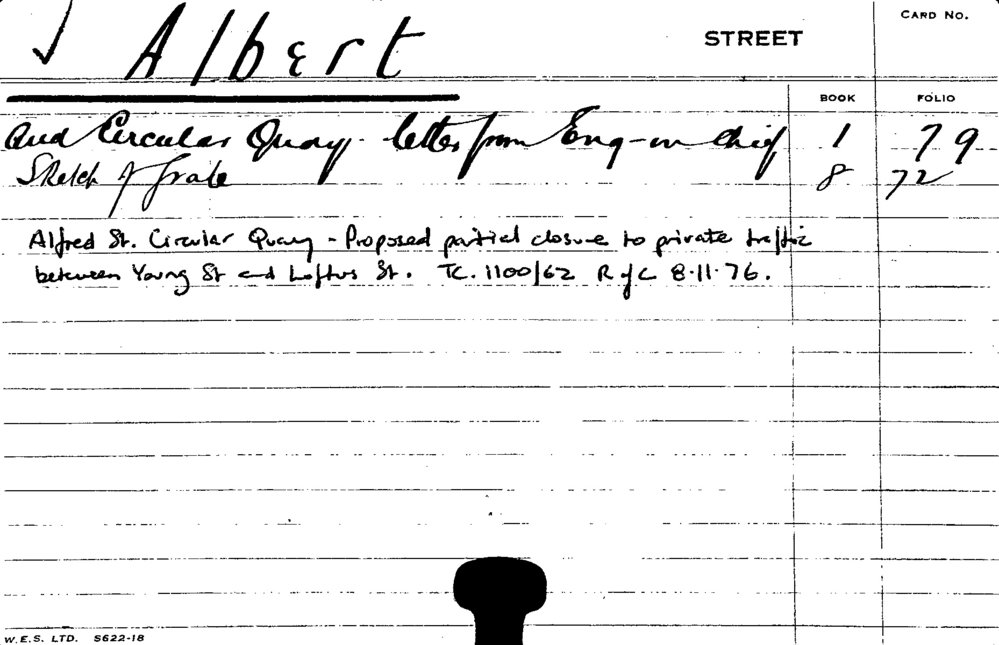 CARD NO.
Albert STREET
BOOK FOLIO
and Circular Quay - letter from Eng-in-Chief 1 79
Sketch of Grate 8 72
Alfred St. Circular Quay - Proposed partial closure to private traffic
between Young St and Loftus St. TC. 1100/62 R of C 8.11.76.
W.E.S. LTD. S622-18